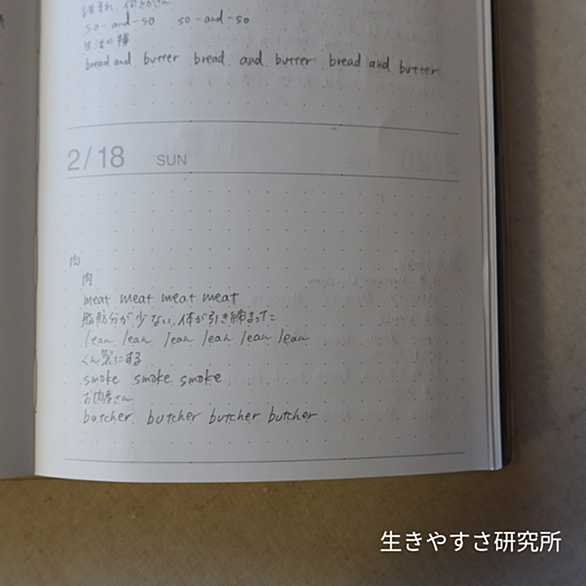 so-and-so so-and-so
生活の糧
bread and butter bread and butter bread and butter
2/18 SUN
肉
肉
meat meat meat meat
脂肪分が少ない、体が引き締まった
lean lean lean lean lean lean
くん製にする
smoke smoke smoke
お肉屋さん
butcher butcher butcher butcher
生きやすさ研究所